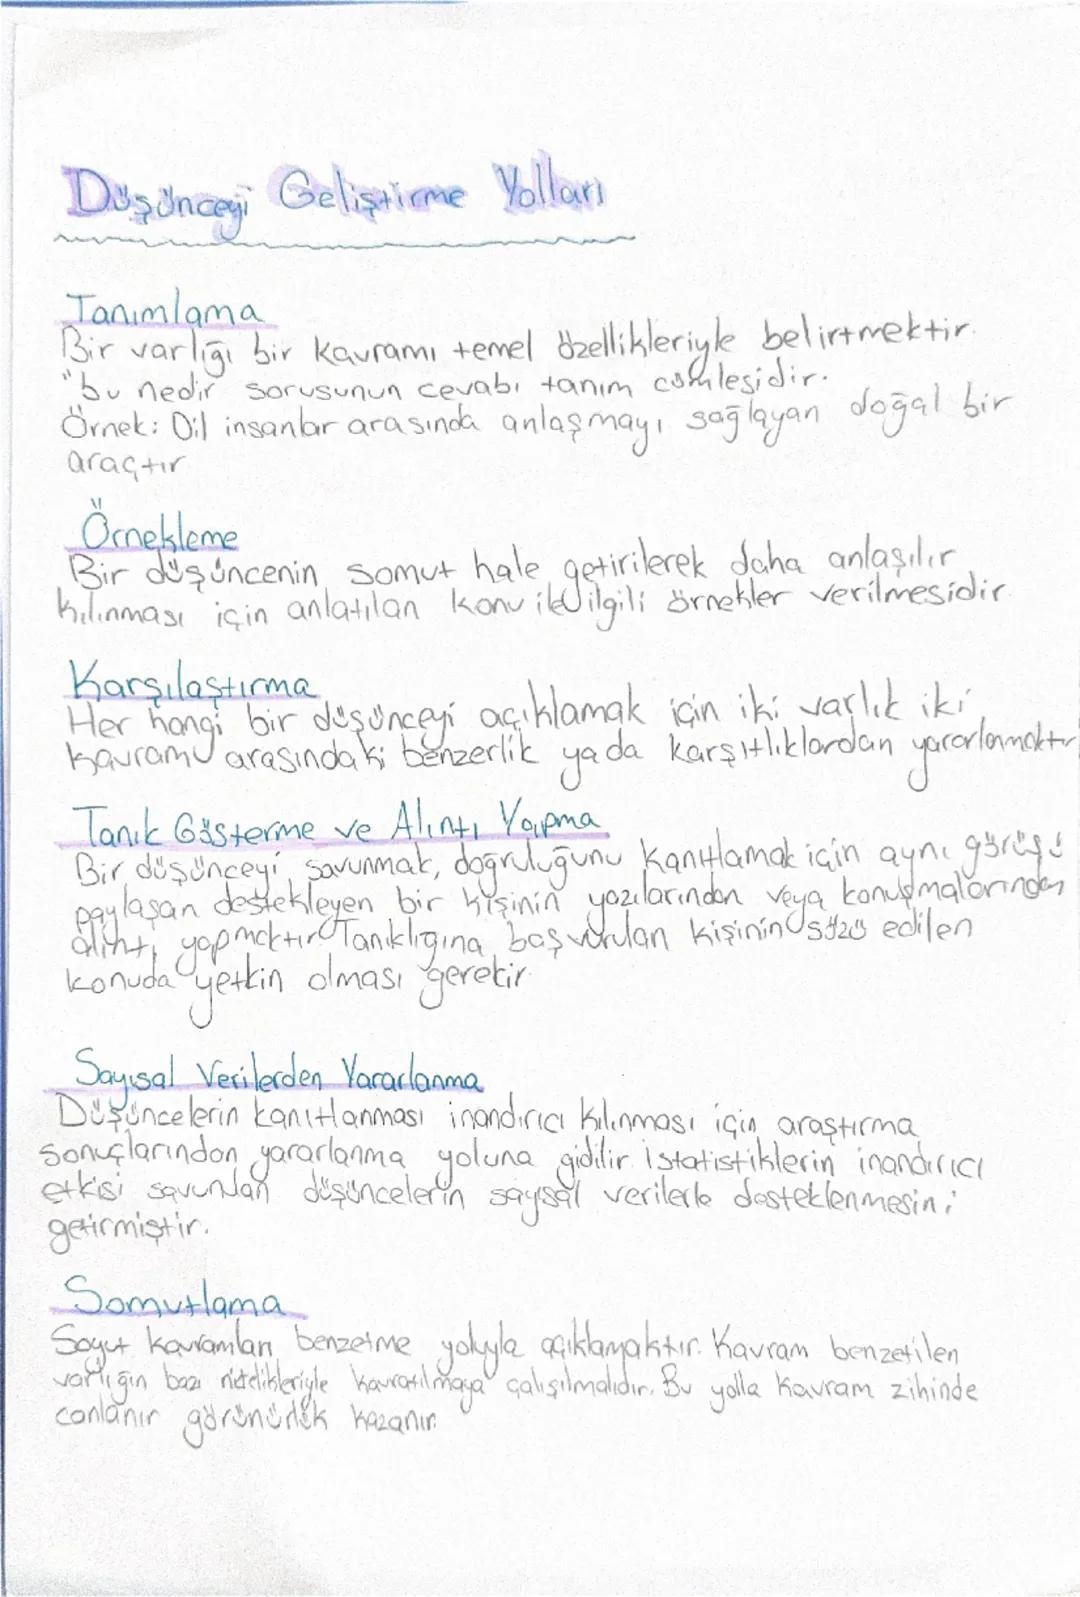 Düşünceyi Geliştirme Yolları
Tanımlama
Bir varlığı bir kavramı temel özellikleriyle belirtmektir.
"bu nedir sorusunun cevabı tanım cümlesidir.
Örnek: Dil insanlar arasında anlaşmayı sağlayan doğal bir
araçtır
Örnekleme
Bir düşüncenin somut hale getirilerek daha anlaşılır
kılınması için anlatılan konu ile ilgili örnekler verilmesidir
Karşılaştırma
Her hangi bir düşünceyi açıklamak için iki varlık iki
kavramı arasındaki benzerlik ya da karşıtlıklardan yararlanmaktır
Tanık Gösterme ve Alıntı Yapma
Bir düşünceyi savunmak, doğruluğunu kanıtlamak için aynı görüşü
paylaşan destekleyen bir kişinin yazılarından veya konuşmalarından
alıntı yapmaktır Tanıklığına başvurulan kişinin sözü edilen
konuda yetkin olması gerekir
Sayısal Verilerden Yararlanma
Düşüncelerin kanıtlanması inandırıcı kılınması için araştırma
sonuçlarından yararlanma yoluna gidilir istatistiklerin inandırıcı
etkisi savunulan düşüncelerin sayısal verilerle desteklenmesini
getirmiştir.
Somutlama
Soyut kavramları benzetme yoluyla açıklamaktır. Kavram benzetilen
varlığın bazı nitelikleriyle kavratılmaya çalışılmalıdır. Bu yolla kavram zihinde
canlanır görünürlük kazanır